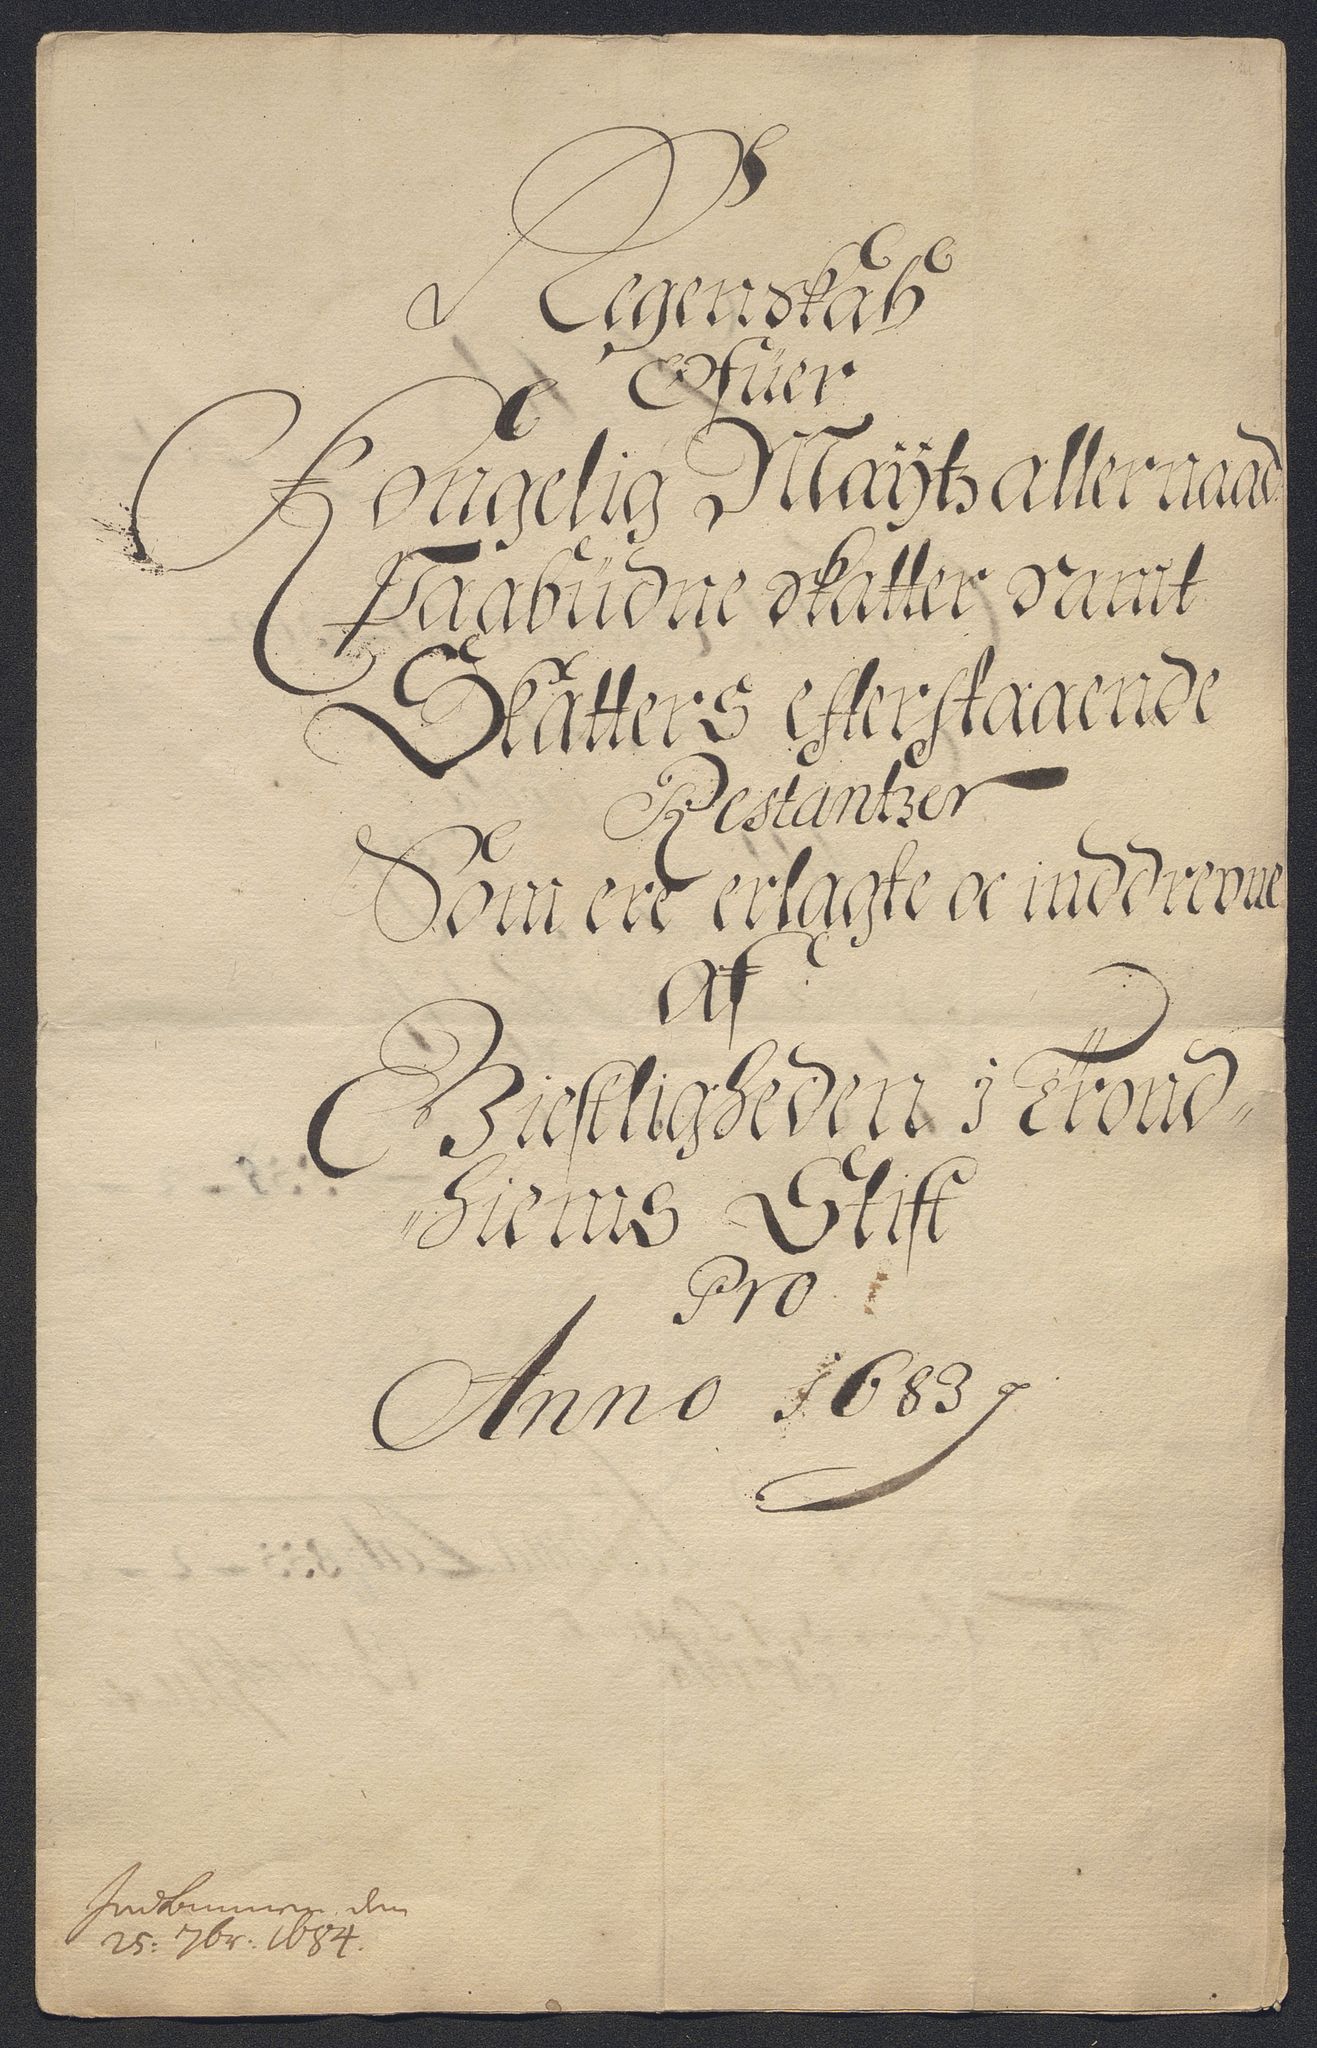 Regenskab
Ofuer
Kongelig Maÿtz allernaad:
Paabüdne skatter samt
Skatters efterstaaende
Restantzer
Som ere erlagte oc inddrevne
af
Gieistligheden i Trond
hiems Stift
Pro
Anno 1683
Indkommen den
25: 7br: 1684.